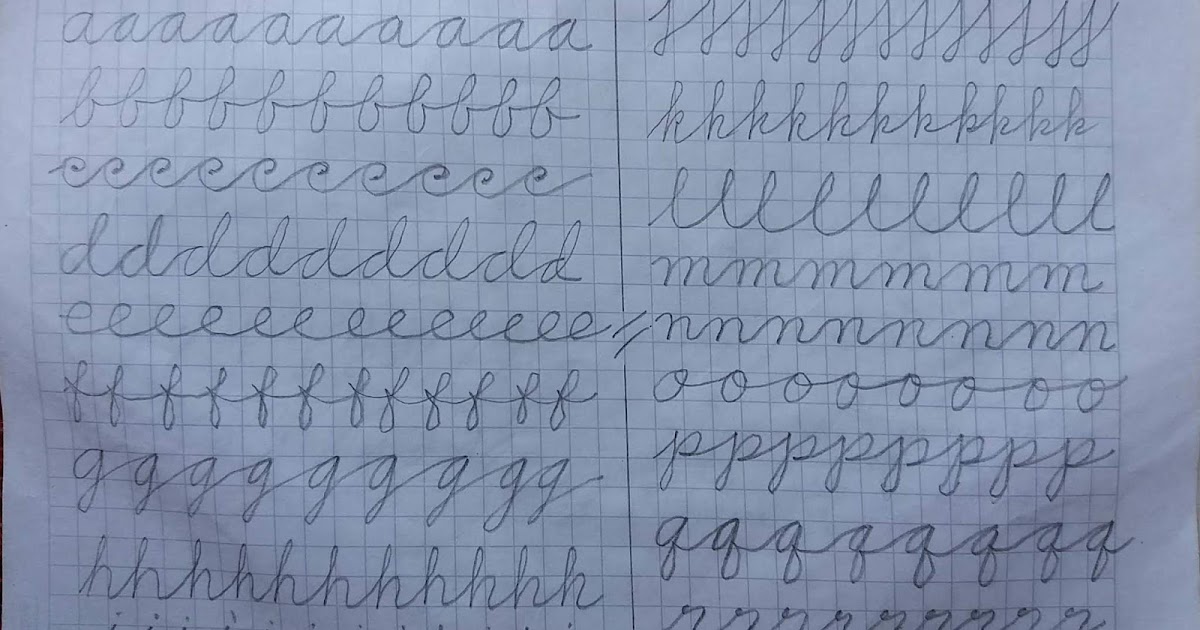 aaaaaaaaaa
bbbbbbbbbbb
cccccccccc
dddddddddd
eeeeeeeeeeeee
ffffffffffff
ggggggggg
hhhhhhhhhhh
jjjjjjjjjjjjj
kkkkkkkkkkk
llllllllll
mmmmmm
nnnnnnnnn
oooooooo
ppppppppp
qqqqqqqq
rrrrrrrrr